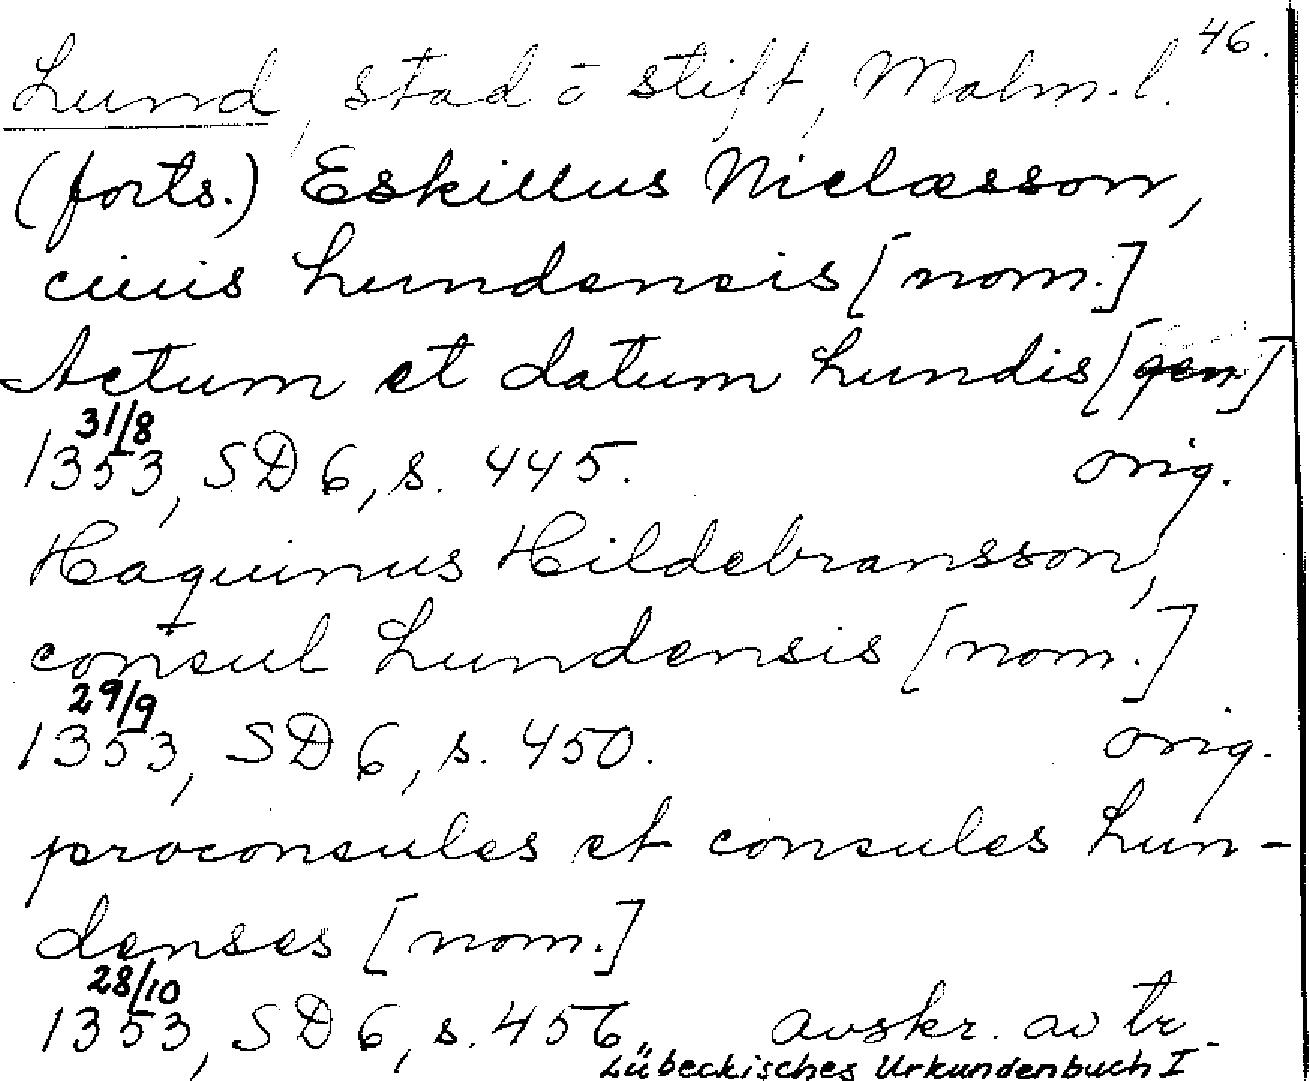 46.
Lund, stad o stift, Malm. l.
(forts.) Eskillus Niclæsson,
ciuis Lundensis [nom.]
Actum et datum Lundis [gen]
31/8
1353, SD 6, s. 445. orig.
Haquinus Hildebransson,
consul Lundensis [nom.]
29/9
1353, SD 6, s. 450. orig.
proconsules et consules Lun-
denses [nom.]
28/10
1353, SD 6, s. 456. avskr. av tr.
Lübeckisches Urkundenbuch I